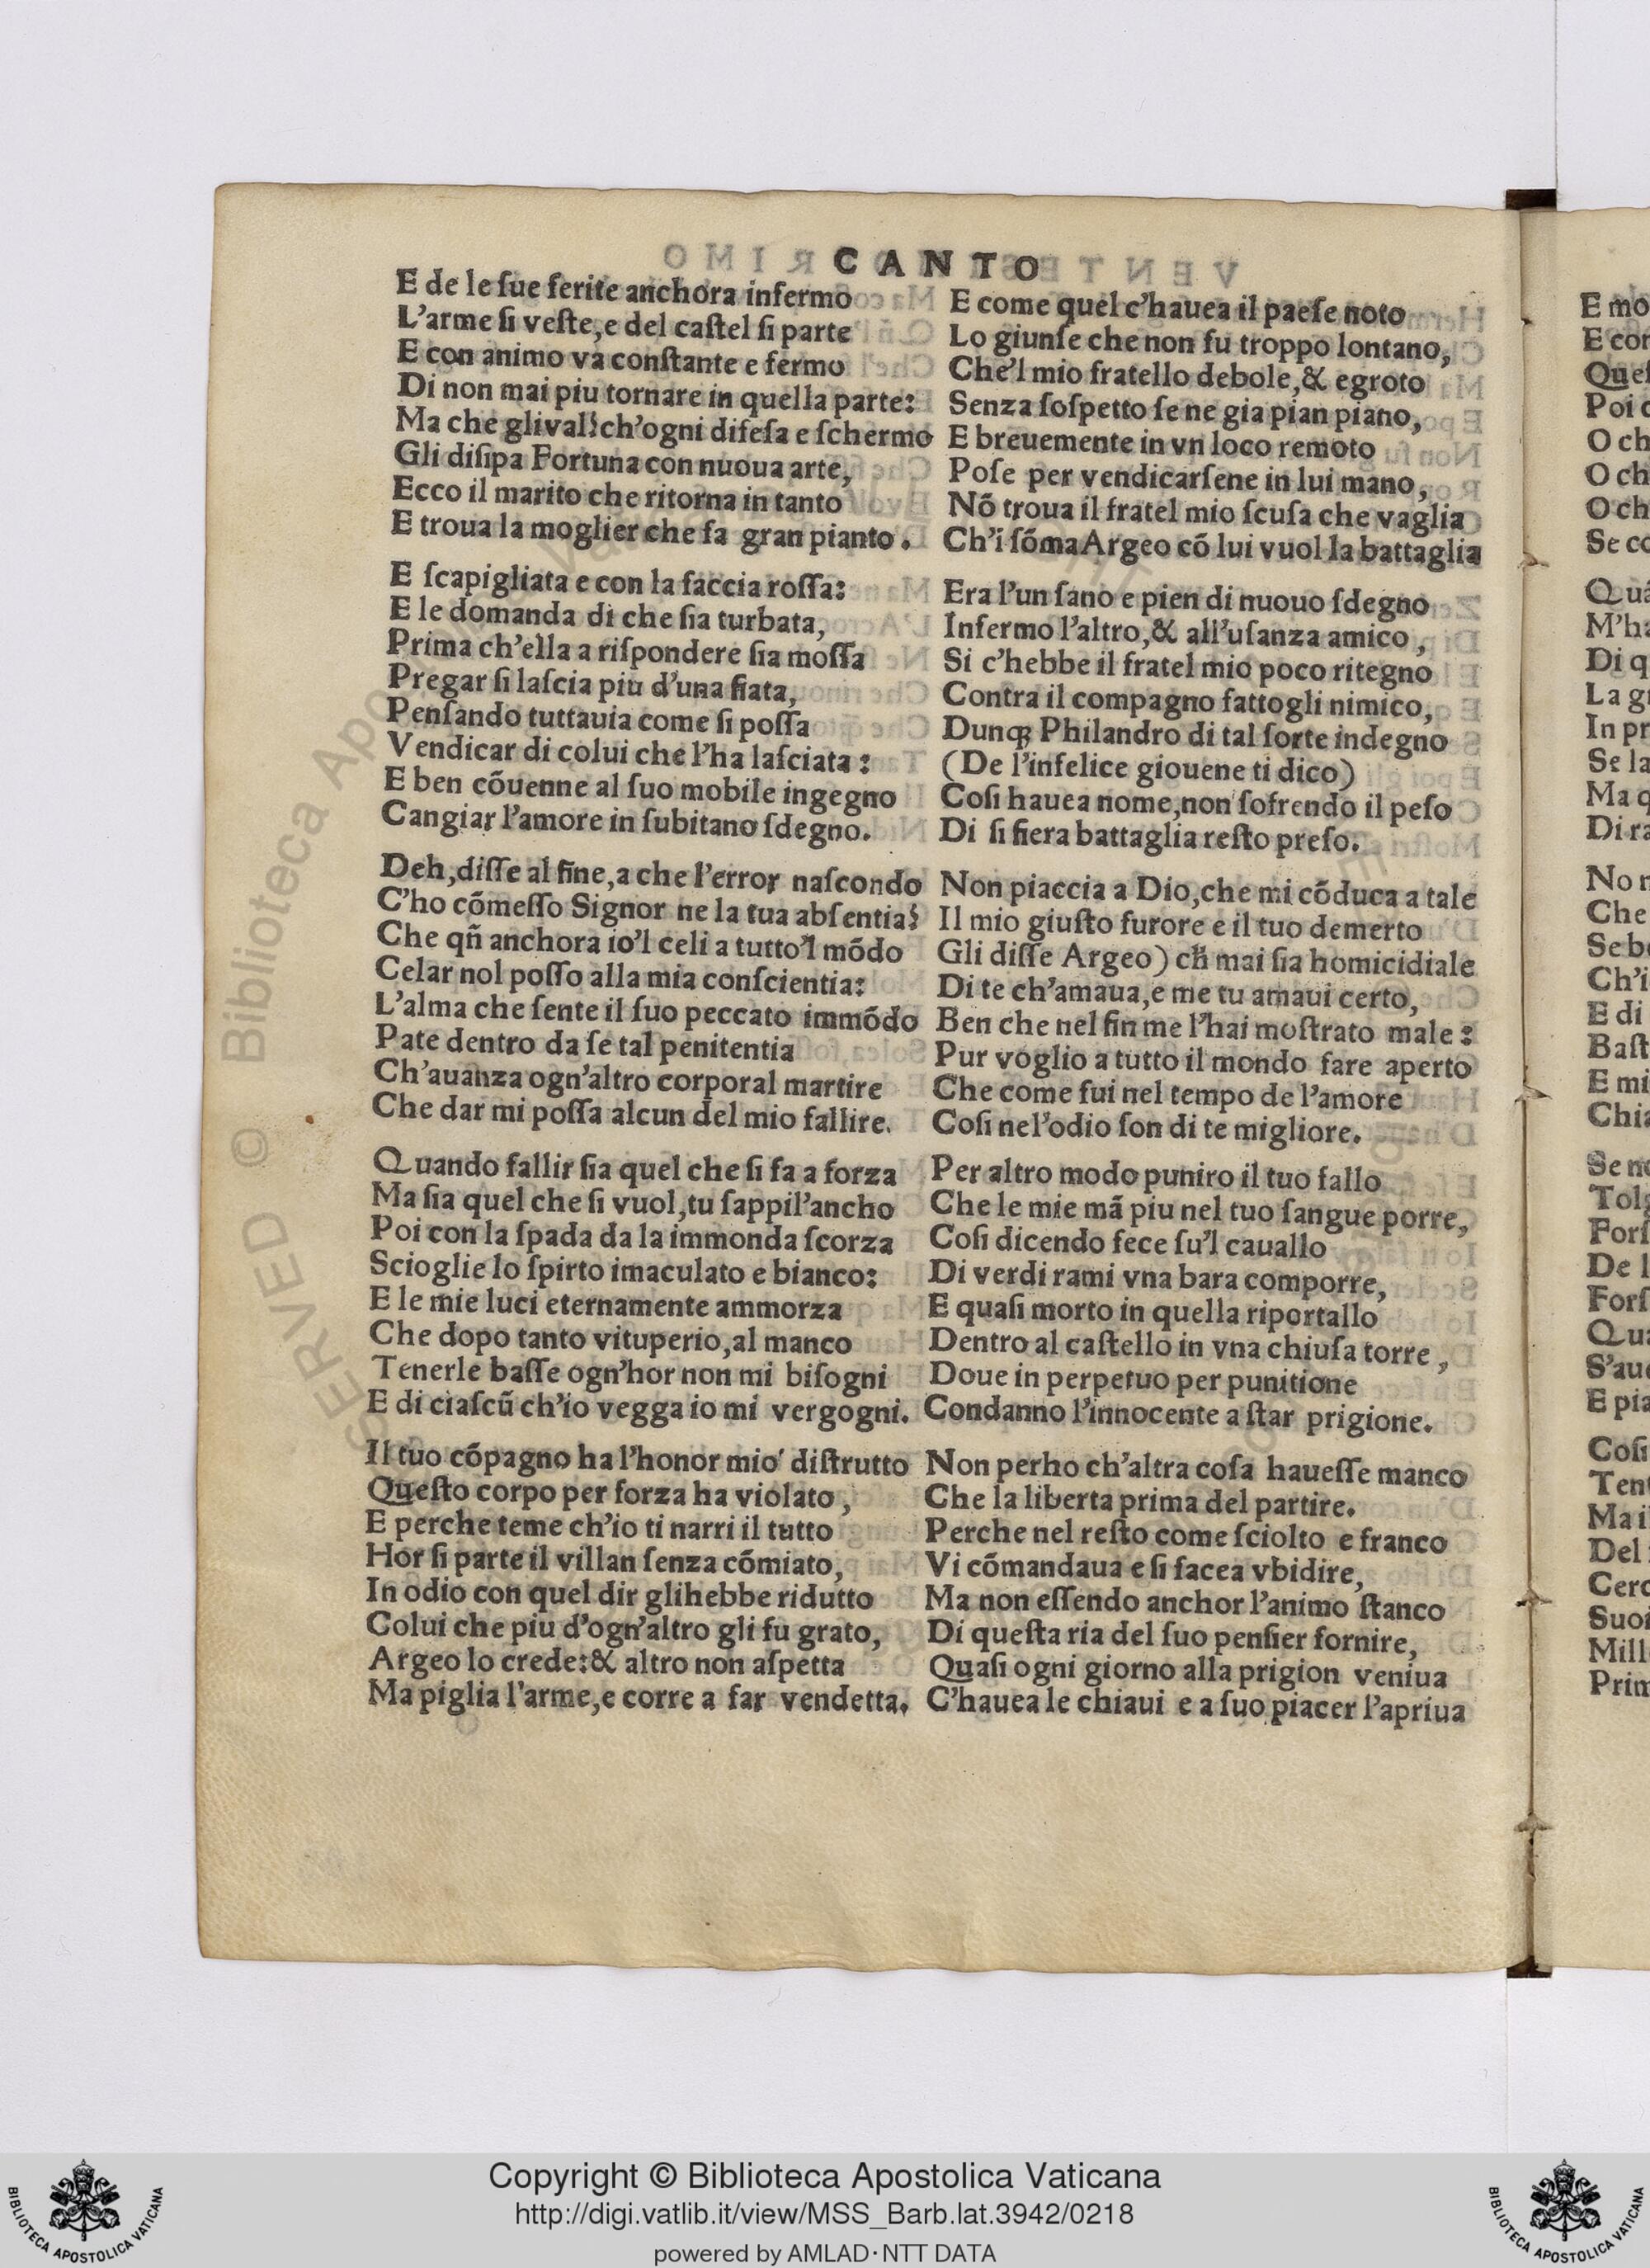 CANTO
E de le ſue ferite anchora infermo
L'arme ſi veſte,e del caſtel ſi parte
E con animo va conſtante e fermo
Di non mai piu tornare in quella parte:
Ma che glival?ch'ogni difeſa e ſchermo
Gli diſipa Fortuna con nuoua arte,
Ecco il marito che ritorna in tanto
E troua la moglier che fa gran pianto.
E ſcapigliata e con la faccia roſſa:
E le domanda di che ſia turbata,
Prima ch'ella a riſpondere ſia moſſa
Pregar ſi laſcia piu d'una fiata,
Penſando tuttauia come ſi poſſa
Vendicar di colui che l'ha laſciata:
E ben cõuenne al ſuo mobile ingegno
Cangiar l'amore in ſubitano ſdegno.
Deh,diſſe al fine,a che l'error naſcondo
C'ho cõmeſſo Signor ne la tua abſentia?
Che qñ anchora io'l celi a tutto'l mõdo
Celar nol poſſo alla mia conſcientia:
L'alma che ſente il ſuo peccato immõdo
Pate dentro da ſe tal penitentia
Ch'auanza ogn'altro corporal martire
Che dar mi poſſa alcun del mio fallire.
Quando fallir ſia quel che ſi fa a forza
Ma ſia quel che ſi vuol,tu ſappil'ancho
Poi con la ſpada da la immonda ſcorza
Scioglie lo ſpirto imaculato e bianco:
E le mie luci eternamente ammorza
Che dopo tanto vituperio,al manco
Tenerle baſſe ogn'hor non mi biſogni
E di ciaſcũ ch'io vegga io mi vergogni.
Il tuo cõpagno ha l'honor mio diſtrutto
Queſto corpo per forza ha violato,
E perche teme ch'io ti narri il tutto
Hor ſi parte il villan ſenza cõmiato,
In odio con quel dir glihebbe ridutto
Colui che piu d'ogn'altro gli fu grato,
Argeo lo crede:& altro non aſpetta
Ma piglia l'arme,e corre a far vendetta.
E come quel c'hauea il paeſe noto
Lo giunſe che non fu troppo lontano,
Che'l mio fratello debole,& egroto
Senza ſoſpetto ſe ne gia pian piano,
E breuemente in vn loco remoto
Poſe per vendicarſene in lui mano,
Nõ troua il fratel mio ſcuſa che vaglia
Ch'i ſõma Argeo cõ lui vuol la battaglia
Era l'un ſano e pien di nuouo ſdegno
Infermo l'altro,& all'uſanza amico,
Si c'hebbe il fratel mio poco ritegno
Contra il compagno fattogli nimico,
Dunqꝫ Philandro di tal ſorte indegno
(De l'infelice giouene ti dico)
Coſi hauea nome,non ſofrendo il peſo
Di ſi fiera battaglia reſto preſo.
Non piaccia a Dio,che mi cõduca a tale
Il mio giuſto furore e il tuo demerto
Gli diſſe Argeo) cħ mai ſia homicidiale
Di te ch'amaua,e me tu amaui certo,
Ben che nel fin me l'hai moſtrato male:
Pur voglio a tutto il mondo fare aperto
Che come fui nel tempo de l'amore
Coſi nel'odio ſon di te migliore.
Per altro modo puniro il tuo fallo
Che le mie mã piu nel tuo ſangue porre,
Coſi dicendo fece ſu'l cauallo
Di verdi rami vna bara comporre,
E quaſi morto in quella riportallo
Dentro al caſtello in vna chiuſa torre,
Doue in perpetuo per punitione
Condanno l'innocente a ſtar prigione.
Non perho ch'altra coſa haueſſe manco
Che la liberta prima del partire.
Perche nel reſto come ſciolto e franco
Vi cõmandaua e ſi facea vbidire,
Ma non eſſendo anchor l'animo ſtanco
Di queſta ria del ſuo penſier fornire,
Quaſi ogni giorno alla prigion veniua
C'hauea le chiaui e a ſuo piacer l'apriua
Copyright © Biblioteca Apostolica Vaticana
http://digi.vatlib.it/view/MSS_Barb.lat.3942/0218
powered by AMLAD·NTT DATA
BIBLIOTECA APOSTOLICA VATICANA
BIBLIOTECA APOSTOLICA VATICANA